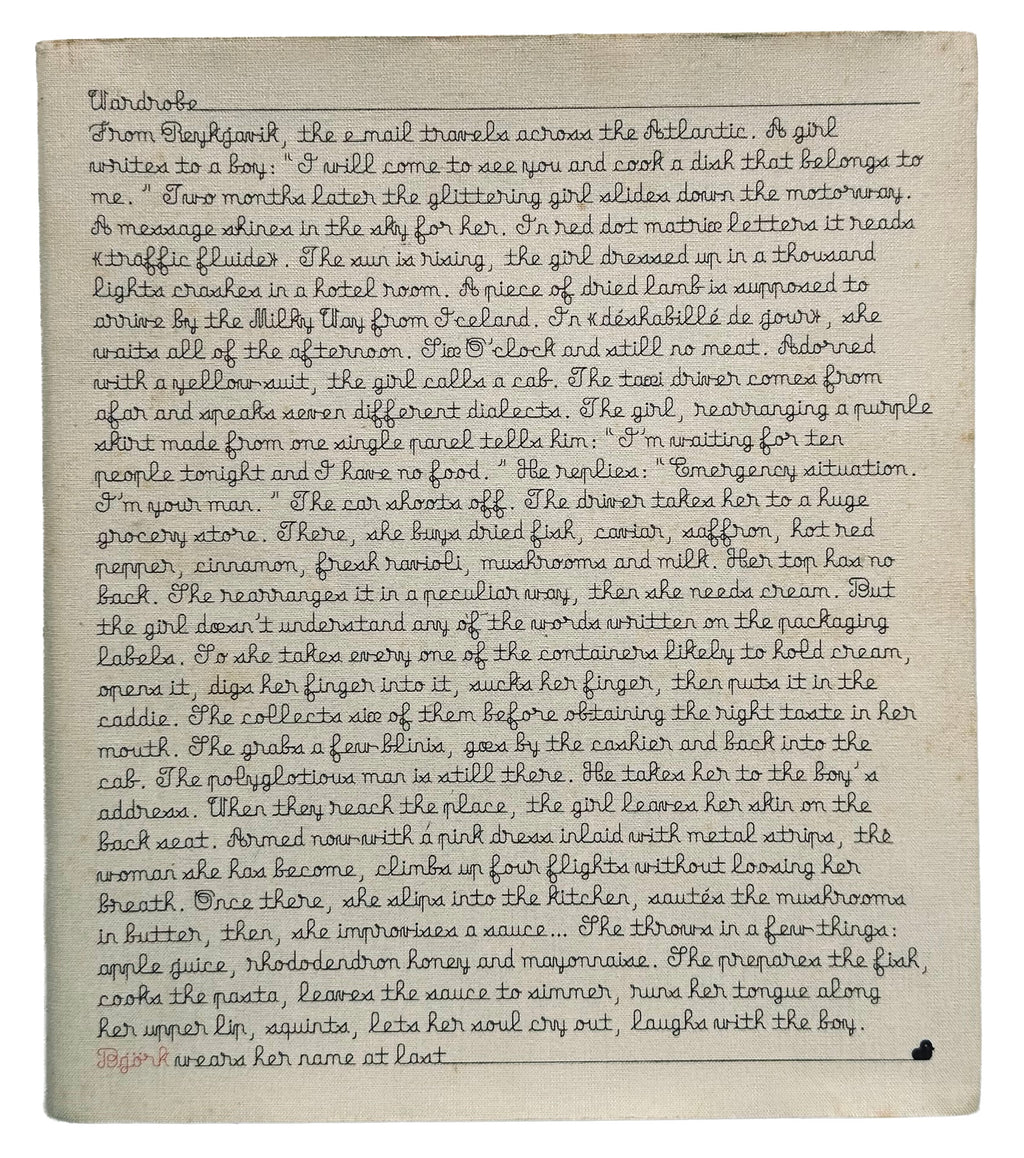 Wardrobe
From Reykjavik, the e mail travels across the Atlantic. A girl
writes to a boy: "I will come to see you and cook a dish that belongs to
me." Two months later the glittering girl slides down the motorway.
A message shines in the sky for her. In red dot matrix letters it reads
«traffic fluide». The sun is rising, the girl dressed up in a thousand
lights crashes in a hotel room. A piece of dried lamb is supposed to
arrive by the Milky Way from Iceland. In «déshabillé de jour», she
waits all of the afternoon. Six O'clock and still no meat. Adorned
with a yellow suit, the girl calls a cab. The taxi driver comes from
afar and speaks seven different dialects. The girl, rearranging a purple
skirt made from one single panel tells him: "I'm waiting for ten
people tonight and I have no food." He replies: "Emergency situation.
I'm your man." The car shoots off. The driver takes her to a huge
grocery store. There, she buys dried fish, caviar, saffron, hot red
pepper, cinnamon, fresh ravioli, mushrooms and milk. Her top has no
back. She rearranges it in a peculiar way, then she needs cream. But
the girl doesn't understand any of the words written on the packaging
labels. So she takes every one of the containers likely to hold cream,
opens it, digs her finger into it, sucks her finger, then puts it in the
caddie. She collects six of them before obtaining the right taste in her
mouth. She grabs a few blinis, goes by the cashier and back into the
cab. The polyglotious man is still there. He takes her to the boy's
address. When they reach the place, the girl leaves her skin on the
back seat. Armed now with a pink dress inlaid with metal strips, the
woman she has become, climbs up four flights without loosing her
breath. Once there, she slips into the kitchen, sautés the mushrooms
in butter, then, she improvises a sauce... She throws in a few things:
apple juice, rhododendron honey and mayonnaise. She prepares the fish,
cooks the pasta, leaves the sauce to simmer, runs her tongue along
her upper lip, squints, lets her soul cry out, laughs with the boy.
Björk wears her name at last